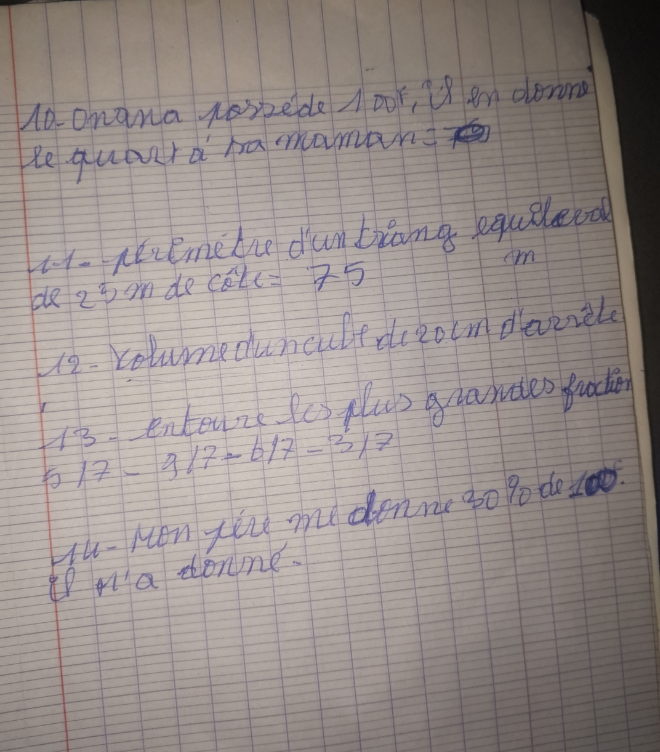 10- Onana possède 100f, il en donne
le quart à sa maman =
11- périmètre d'un triang equilateral
de 25 m de côté = 75 m
12- Volume d'un cube de 20 cm d'arrête
13- entoure les plus grandes fraction
5/7 - 9/7 - 6/7 - 3/7
14- Mon père me donne 30% de 100f.
Il m'a donné.